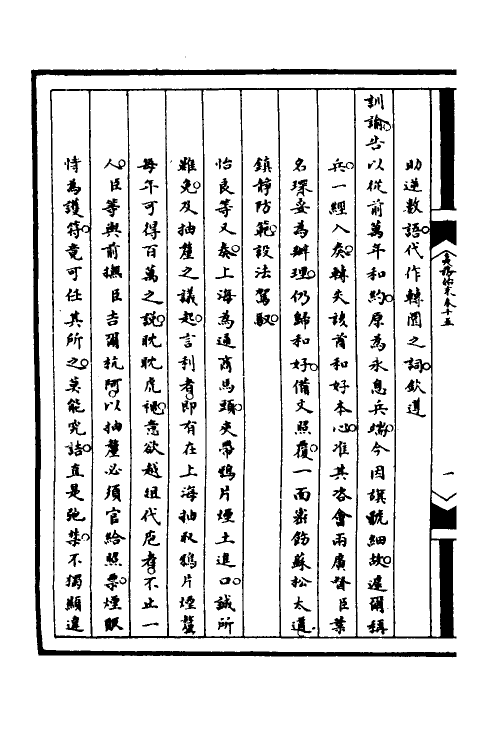 助逆數語代作轉圜之詞欽遵
訓諭告以從前萬年和約原為永息兵端今因旗號細故遽爾稱
兵一經入奏轉失該酋和好本心准其咨會兩廣督臣葉
名琛妥為辦理仍歸和好備文照覆一面密飭蘇松太道
鎮靜防範設法駕馭
怡良等又奏上海為通商馬頭夾帶鴉片煙土進口誠所
難免及抽釐之議起言利者即有在上海抽取鴉片煙釐
每年可得百萬之說耽耽虎視意欲越俎代庖者不止一
人臣等與前撫臣吉爾杭阿以抽釐必須官給照票煙販
恃為護符竟可任其所之莫能究詰直是弛禁不獨顯違
卷十五
一